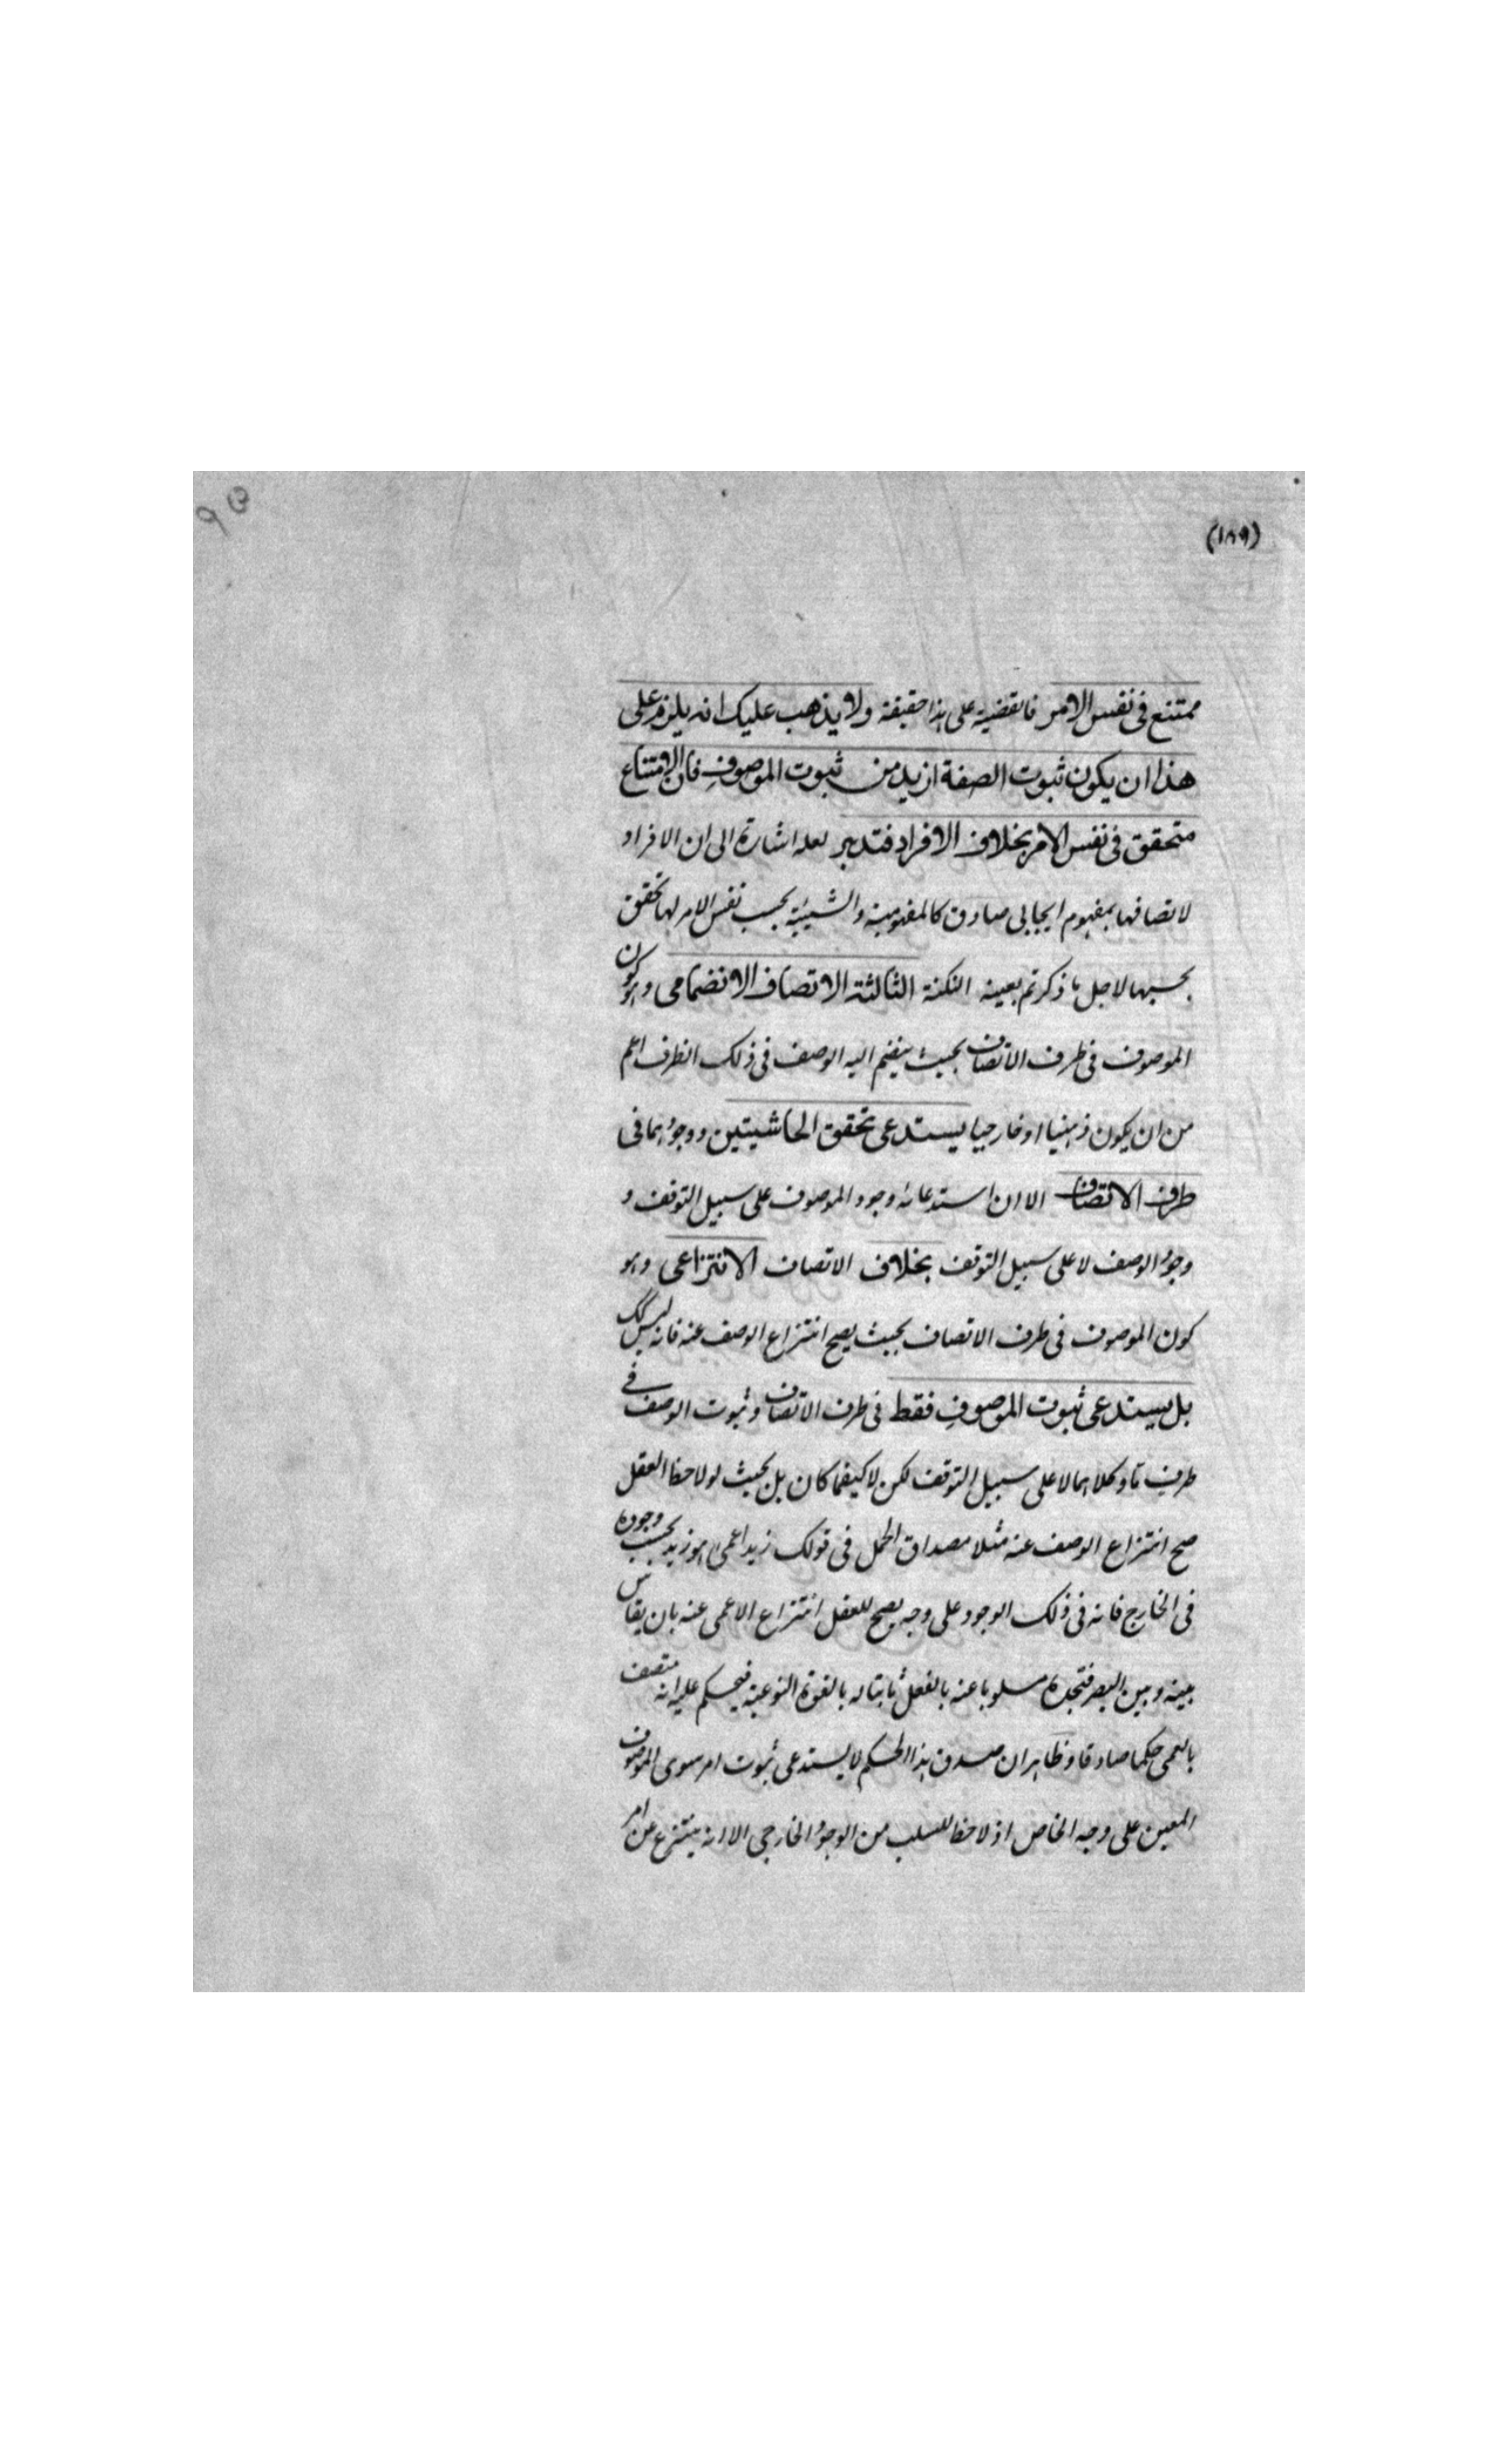 (١٨٩)
ممتنع فى نفس الامر فالقضية على هذا حقيقة ولا يذهب عليك انه يلزم على
هذا ان يكون ثبوت الصفة ازيد من ثبوت الموصوف فان الامتناع
متحقق فى نفس الامر بخلاف الافراد فتدبر لعله اشارة الى ان الافراد
لاتصافها بمفهوم ايجابى صادق كالمفهومية والشيئية بحسب نفس الامر لها تحقق
بحسبها لاجل ما ذكرتم بعينه النكتة الثالثة الاتصاف الانضمامى وهو كون
الموصوف فى ظرف الاتصاف بحيث ينضم اليه الوصف فى ذلك الظرف اعم
من ان يكون ذهنيا او خارجيا يستدعى تحقق الحاشيتين ووجودهما فى
ظرف الاتصاف الا ان استدعائه وجود الموصوف على سبيل التوقف و
وجود الوصف لا على سبيل التوقف بخلاف الاتصاف الانتزاعى وهو
كون الموصوف فى ظرف الاتصاف بحيث يصح انتزاع الوصف عنه فانه ليس كك
بل يستدعى ثبوت الموصوف فقط فى ظرف الاتصاف وثبوت الوصف فے
ظرف ما وكلاهما لا على سبيل التوقف لكن لا كيفما كان بل بحيث لو لاحظ العقل
صح انتزاع الوصف عنه مثلا مصداق الحمل فى قولك زيد اعمى هو زيد بحسب وجوده
فى الخارج فانه فى ذلك الوجود على وجه يصح للعقل انتزاع الاعمى عنه بان يقاس
بينه وبين البصر فتجده مسلوبا عنه بالفعل ثابتا له بالقوة النوعية فيحكم عليه انه متصف
بالعمى حكما صادقا وظاهر ان صدق هذا الحكم لا يستدعى ثبوت امر سوى الموصوف
المعين على وجه الخاص اذ لاحظ للسلب من الوجود الخارجى الا انه ينتزع عن امر